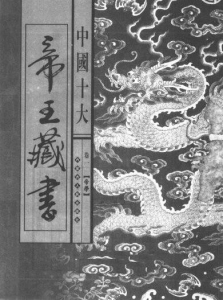 中國十大
帝王藏書